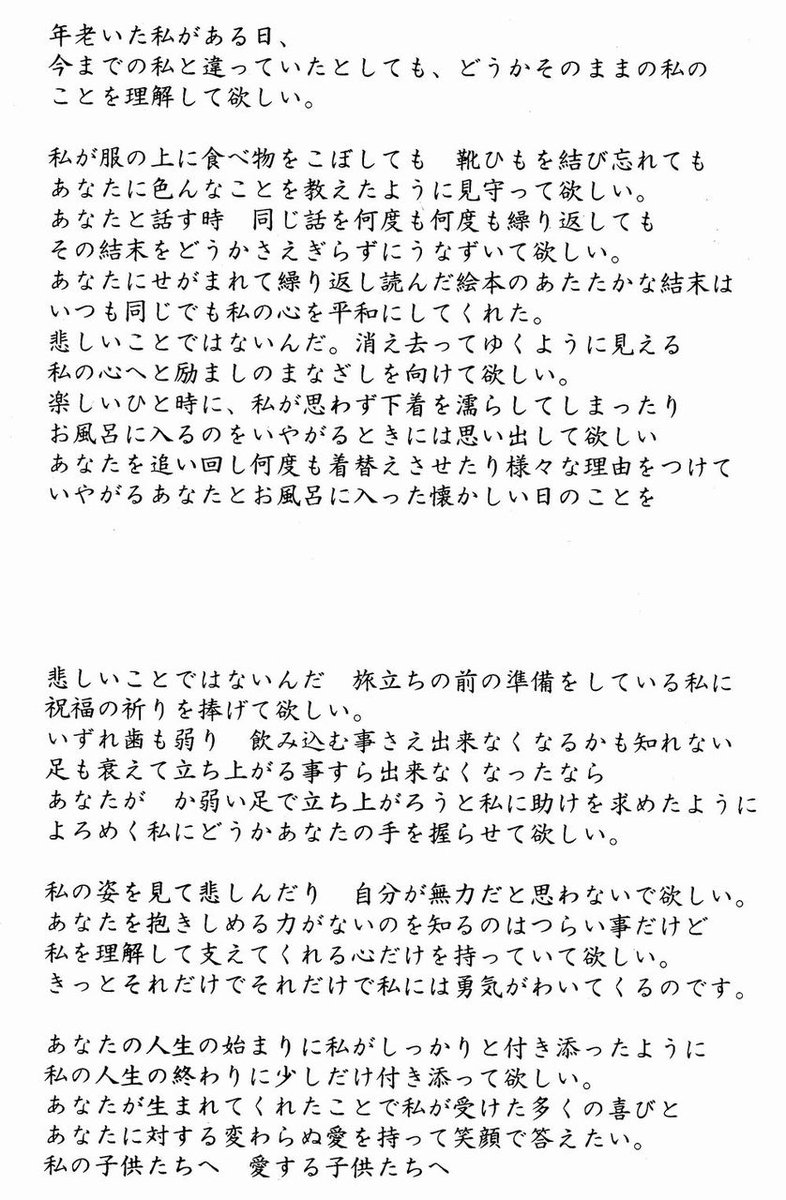 年老いた私がある日、
今までの私と違っていたとしても、どうかそのままの私の
ことを理解して欲しい。
私が服の上に食べ物をこぼしても　靴ひもを結び忘れても
あなたに色んなことを教えたように見守って欲しい。
あなたと話す時　同じ話を何度も何度も繰り返しても
その結末をどうかさえぎらずにうなずいて欲しい。
あなたにせがまれて繰り返し読んだ絵本のあたたかな結末は
いつも同じでも私の心を平和にしてくれた。
悲しいことではないんだ。消え去ってゆくように見える
私の心へと励ましのまなざしを向けて欲しい。
楽しいひと時に、私が思わず下着を濡らしてしまったり
お風呂に入るのをいやがるときには思い出して欲しい
あなたを追い回し何度も着替えさせたり様々な理由をつけて
いやがるあなたとお風呂に入った懐かしい日のことを
悲しいことではないんだ　旅立ちの前の準備をしている私に
祝福の祈りを捧げて欲しい。
いずれ歯も弱り　飲み込む事さえ出来なくなるかも知れない
足も衰えて立ち上がる事すら出来なくなったなら
あなたが　か弱い足で立ち上がろうと私に助けを求めたように
よろめく私にどうかあなたの手を握らせて欲しい。
私の姿を見て悲しんだり　自分が無力だと思わないで欲しい。
あなたを抱きしめる力がないのを知るのはつらい事だけど
私を理解して支えてくれる心だけを持っていて欲しい。
きっとそれだけでそれだけで私には勇気がわいてくるのです。
あなたの人生の始まりに私がしっかりと付き添ったように
私の人生の終わりに少しだけ付き添って欲しい。
あなたが生まれてくれたことで私が受けた多くの喜びと
あなたに対する変わらぬ愛を持って笑顔で答えたい。
私の子供たちへ　愛する子供たちへ